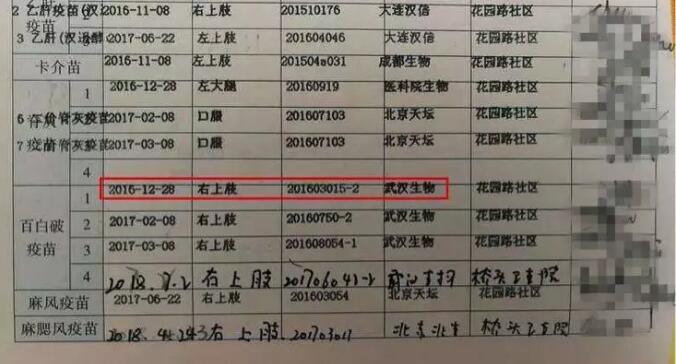 2 乙肝疫苗(汉 2 2016-11-08 右上肢 201510176 大连汉信 花园路社区
3 乙肝(汉 2017-06-22 左上肢 201604046 大连汉信 花园路社区
卡介苗 2016-11-08 左上肢 201504a031 成都生物 花园路社区
1 2016-12-28 左大腿 20160919 医科院生物 花园路社区
6 脊灰疫苗 2017-02-08 口服 201607103 北京天坛 花园路社区
7 疫苗 2017-03-08 口服 201607103 北京天坛 花园路社区
4
百白破疫苗 1 2016-12-28 右上肢 201603015-2 武汉生物 花园路社区
2 2017-02-08 右上肢 20160750-2 武汉生物 花园路社区
3 2017-03-08 右上肢 201608054-1 武汉生物 花园路社区
4 2018.7.2 右上肢 201706041-2 桥头卫生院
麻风疫苗 2017-06-22 右上肢 201603054 北京天坛 花园路社区
麻腮风疫苗 2018. 右上肢 北京北生 桥头卫生院